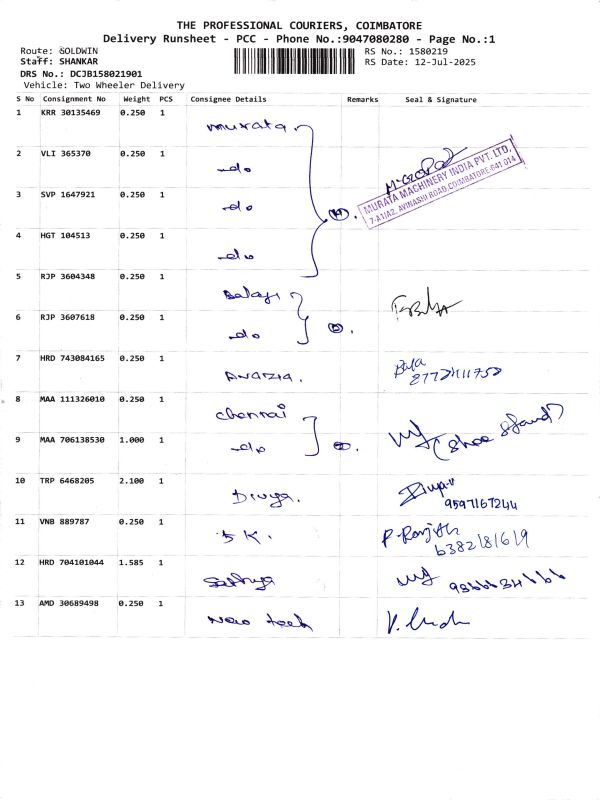 THE PROFESSIONAL COURIERS, COIMBATORE
Delivery Runsheet - PCC - Phone No.:9047080280 - Page No.:1
Route: GOLDWIN RS No.: 1580219
Staff: SHANKAR RS Date: 12-Jul-2025
DRS No.: DCJB158021901
Vehicle: Two Wheeler Delivery
S No Consignment No Weight PCS Consignee Details Remarks Seal & Signature
1 KRR 30135469 0.250 1 murata.
2 VLI 365370 0.250 1 -do
MURATA MACHINERY INDIA PVT. LTD.
7-A1/A2, AVINASHI ROAD, COIMBATORE-641 014
3 SVP 1647921 0.250 1 -do
4 HGT 104513 0.250 1 -do
5 RJP 3604348 0.250 1 Balaji
6 RJP 3607618 0.250 1 -do
7 HRD 743084165 0.250 1
8 MAA 111326010 0.250 1 chennai
9 MAA 706138530 1.000 1 -do
10 TRP 6468205 2.100 1 Divya. Divya
9597167244
11 VNB 889787 0.250 1 P. Ranjith
6382181619
12 HRD 704101044 1.585 1 Sathya
13 AMD 30689498 0.250 1 New tech